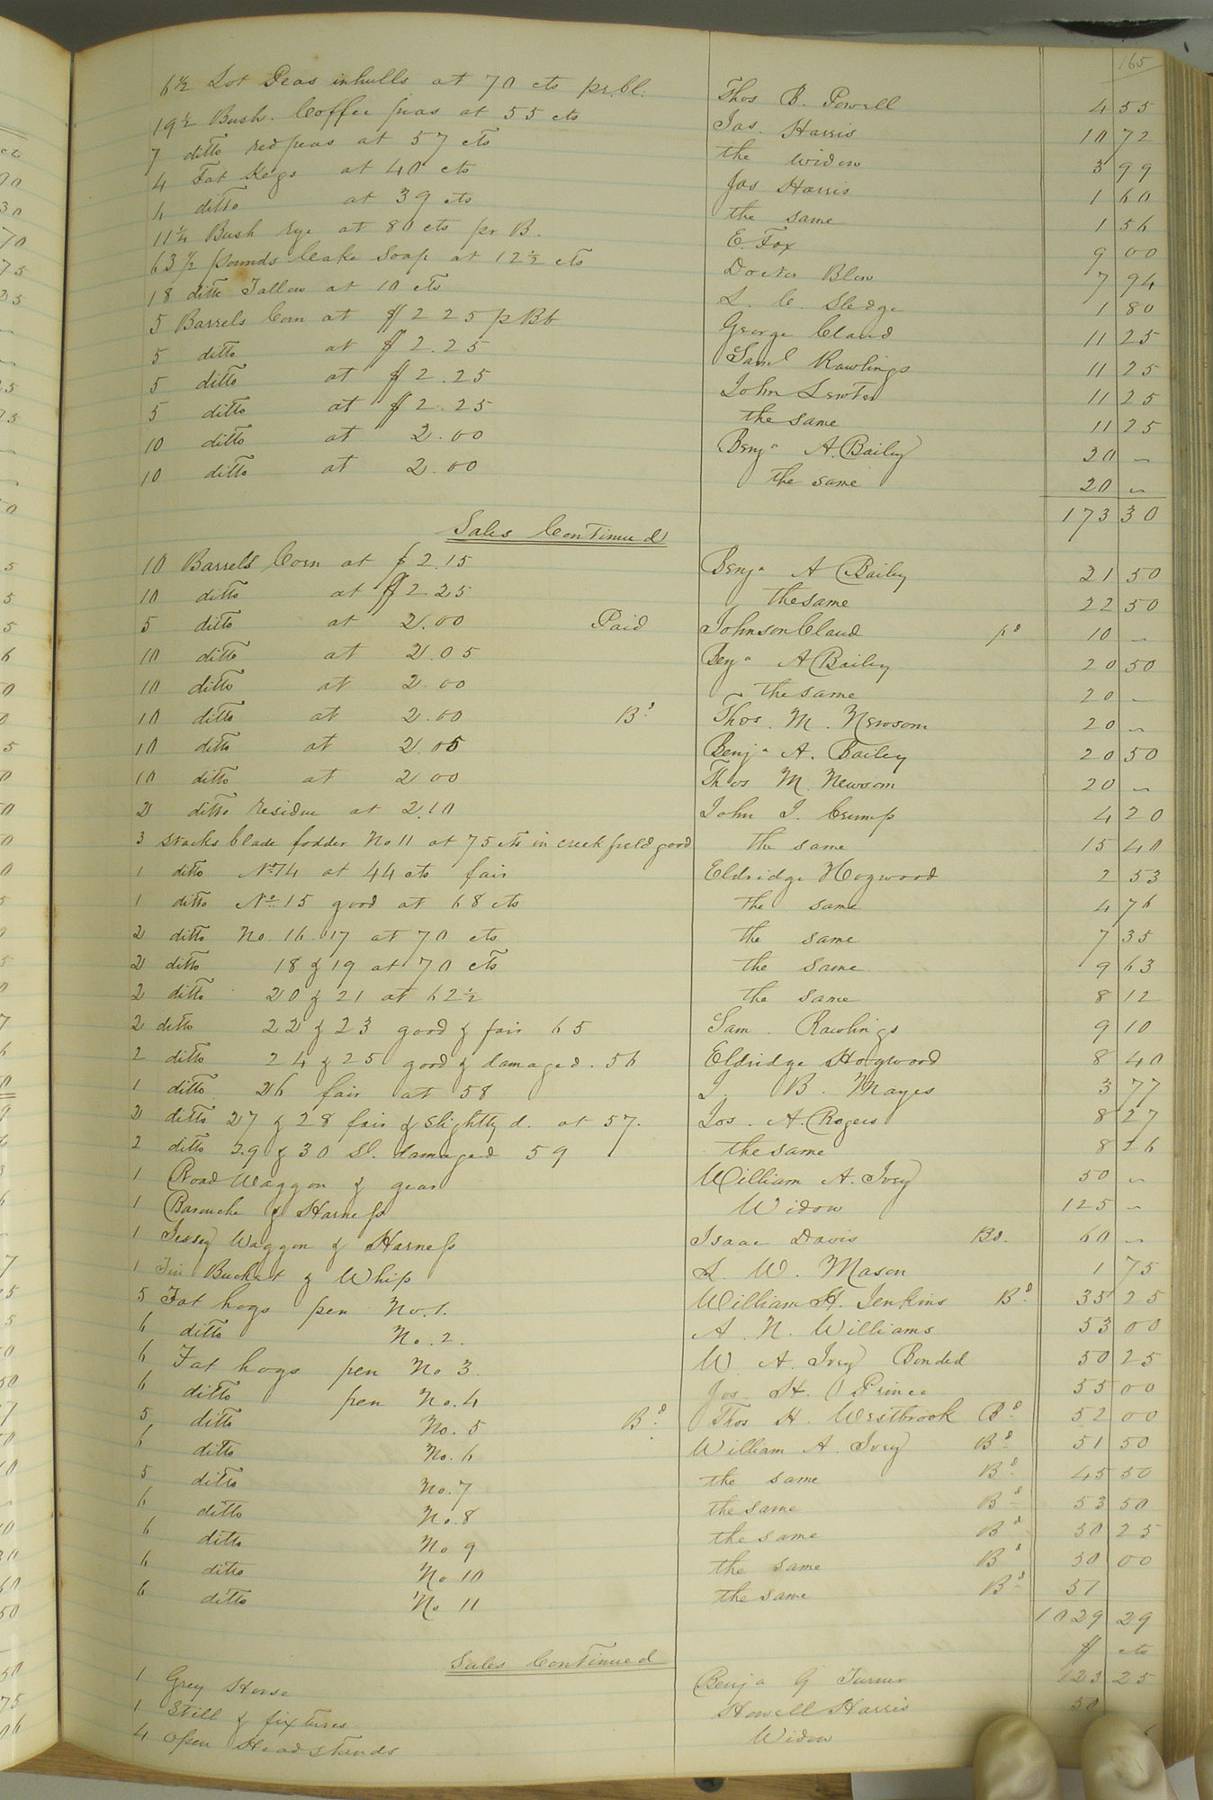 165
6½ Lot Peas in hulls at 70 cts pr. bl. Thos B. Powell 4 55
19½ Bush. Coffee peas at 55 cts Jas. Harris 10 72
7 ditto red peas at 57 cts the widow 3 99
4 Fat Kegs at 40 cts Jas Harris 1 60
4 ditto at 39 cts the same 1 56
11¼ Bush Rye at 80 cts pr B. E. Fox 9 00
63½ pounds Cake Soap at 12½ cts Doctor Blow 7 94
18 ditto Tallow at 10 cts L. C. Sledge 1 80
5 Barrels Corn at $ 2 25 p Bb George Claud 11 25
5 ditto at $ 2.25 Saml Rawlings 11 25
5 ditto at $ 2.25 John Lewter 11 25
5 ditto at $ 2.25 the same 11 25
10 ditto at 2.00 Benja A. Bailey 20 -
10 ditto at 2.00 the same 20 -
173 30
Sales Continued
10 Barrels Corn at $ 2.15 Benja A Bailey 21 50
10 ditto at $ 2 25 the same 22 50
5 ditto at 2.00 Paid Johnson Claud pd 10 -
10 ditto at 2.05 Benja A Bailey 20 50
10 ditto at 2.00 the same 20 -
10 ditto at 2.00 Bd. Thos. M. Newsom 20 -
10 ditto at 2.05 Benja A. Bailey 20 50
10 ditto at 2 00 Thos M. Newsom 20 -
2 ditto residue at 2.10 John J. Crump 4 20
3 stacks blade fodder No 11 at 75 cts in creek field good the same 15 40
1 ditto No 14 at 44 cts fair Eldridge Hogwood 2 53
1 ditto No 15 good at 68 cts the same 4 76
2 ditto No. 16 17 at 70 cts the same 7 35
2 ditto 18 & 19 at 70 cts the same 9 63
2 ditto 20 & 21 at 62½ the same 8 12
2 ditto 22 & 23 good & fair 65 Sam. Rawlings 9 10
2 ditto 24 & 25 good & damaged. 56 Eldridge Hogwood 8 40
1 ditto 26 fair at 58 B. Mayes 3 77
2 ditto 27 & 28 fair & slightly d. at 57. Jos. A. Rogers 8 27
2 ditto 29 & 30 Sl. damaged 59 the same 8 26
1 Road Waggon & gear William A. Ivey 50 -
1 Barouche & Harness Widow 125 -
1 Jersey Waggon & Harness Isaac Davis Bd. 60 -
1 Tin Bucket & Whip L. W. Mason 1 75
5 Fat hogs pen No. 1. William H. Jenkins Bd 35 25
6 ditto No. 2. A. N. Williams 53 00
6 Fat hogs pen No 3. W. A. Ivey Bonded 50 25
6 ditto pen No. 4 Jos. H. Prince 55 00
5 ditto No. 5 Bd. Thos H. Westbrook Bd. 52 00
6 ditto No. 6 William A. Ivey Bd. 51 50
5 ditto No. 7 the same Bd. 45 50
6 ditto No. 8 the same Bd 53 50
6 ditto No 9 the same Bd 50 25
6 ditto No 10 the same Bd 50 00
6 ditto No 11 the same Bd 51
1029 29
$ cts
Sales Continued
1 Grey Horse Benja G Turner 123 25
1 Still & fixtures Howell Harris 50
4 open Head stands Widow